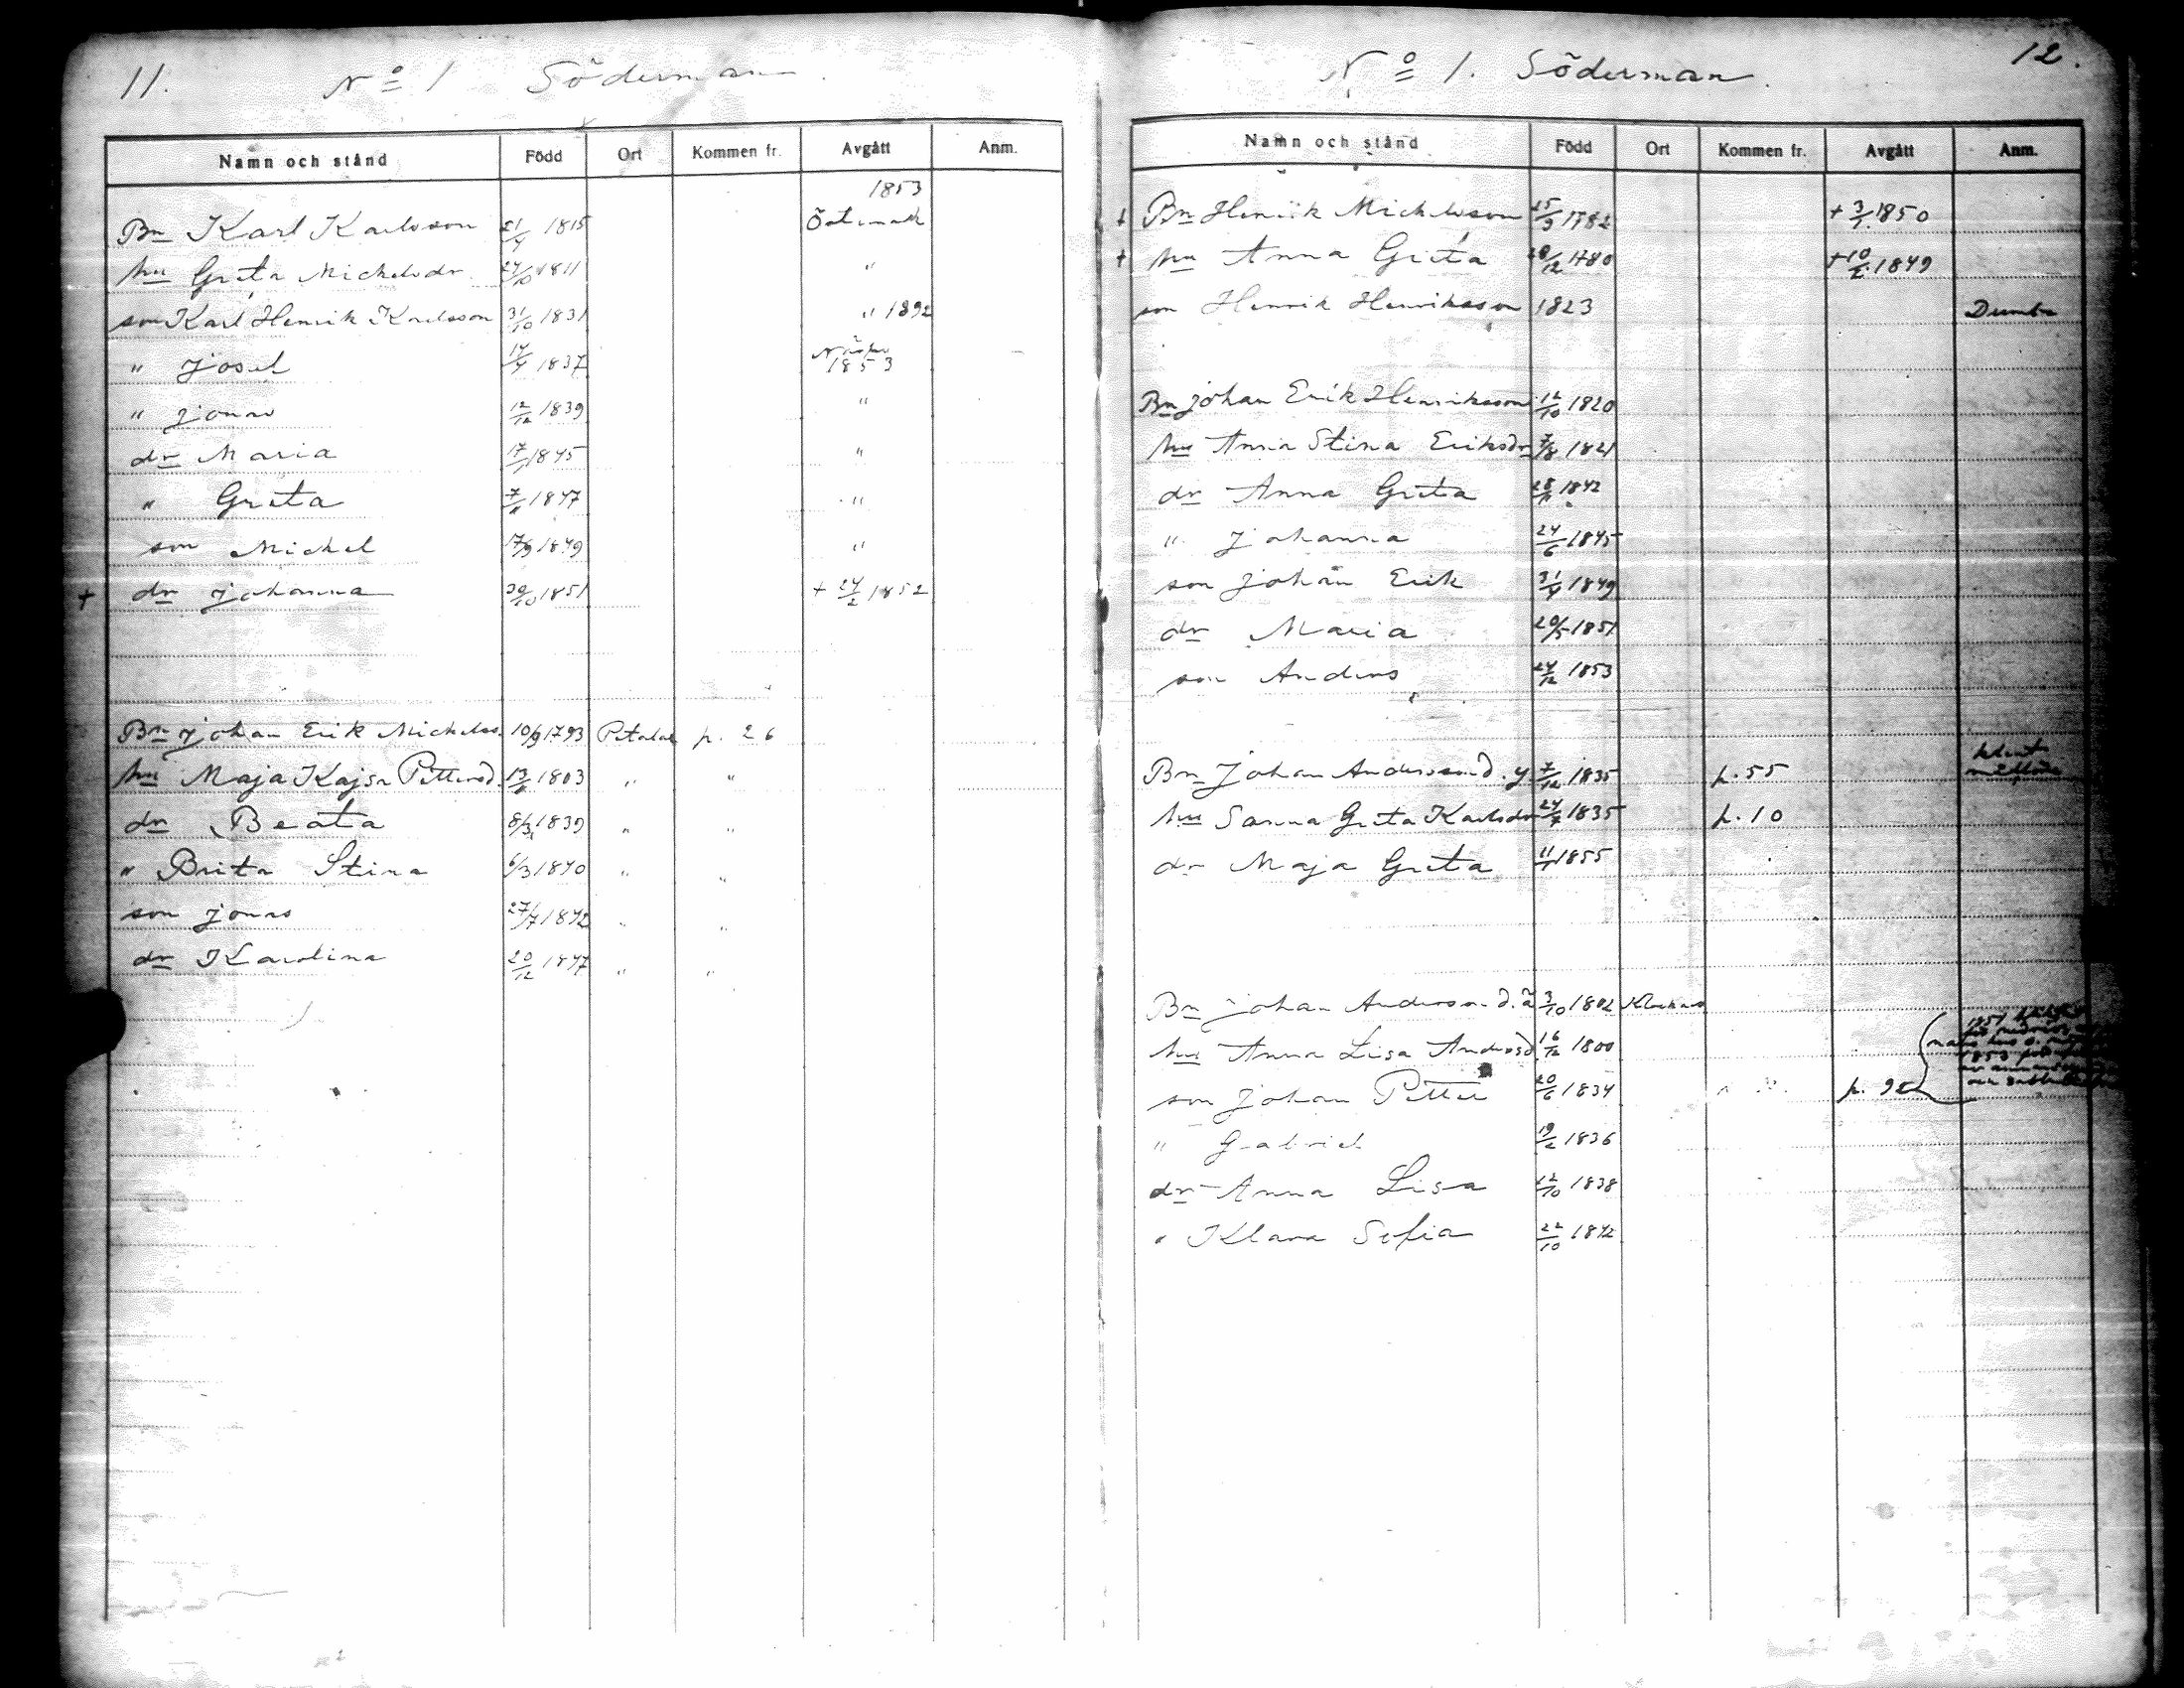 11. No 1 Söderman
Namn och stånd Född Ort Kommen fr. Avgått Anm.
1853
Bn Karl Karlsson 21/4 1815
hu Greta Mickelsdr. 24/10 1811 "
son Karl Henrik Karlsson 31/10 1831 " 1892
" Josef 14/4 1837 1853
" Jonas 12/12 1839 "
dr Maria 17/1 1845 "
" Greta 7/11 1847 "
son Mickel 17/9 1849 "
+ dr Johanna 30/10 1851 + 24/2 1852
Bn Johan Erik Mickelss. 10/9 1793 Petalax p. 26
hu Maja Kajsa Pettersd. 1803 " "
dr Beata 8/3 1839 " "
" Brita Stina 6/3 1840 " "
son Jonas 27/7 1842 " "
dr Karolina 20/12 1847 " "
No 1. Söderman 12.
Namn och stånd Född Ort Kommen fr. Avgått Anm.
+ Bn Henrik Mickelsson 25/9 1782 + 1850
+ hu Anna Greta 28/12 1780 + 1849
son Henrik Henriksson 1823
Bn Johan Erik Henriksson 12/10 1820
hu Anna Stina Eriksdr 7/8 1821
dr Anna Greta 28/11 1842
" Johanna 24/6 1845
son Johan Erik 31/7 1849
dr Maria 20/5 1851
son Anders 24/12 1853
Bn Johan Andersson d.y. 7/12 1835 p. 55
hu Sanna Greta Karlsdr 1835 p. 10
dr Maja Greta 1855
Bn Johan Andersson d.ä 3/10 1802
hu Anna Lisa Andersd 16/12 1800
son Johan Petter 20/6 1834 p. 92
" Gabriel 19/2 1836
dr Anna Lisa 12/10 1838
" Klara Sofia 22/10 1842